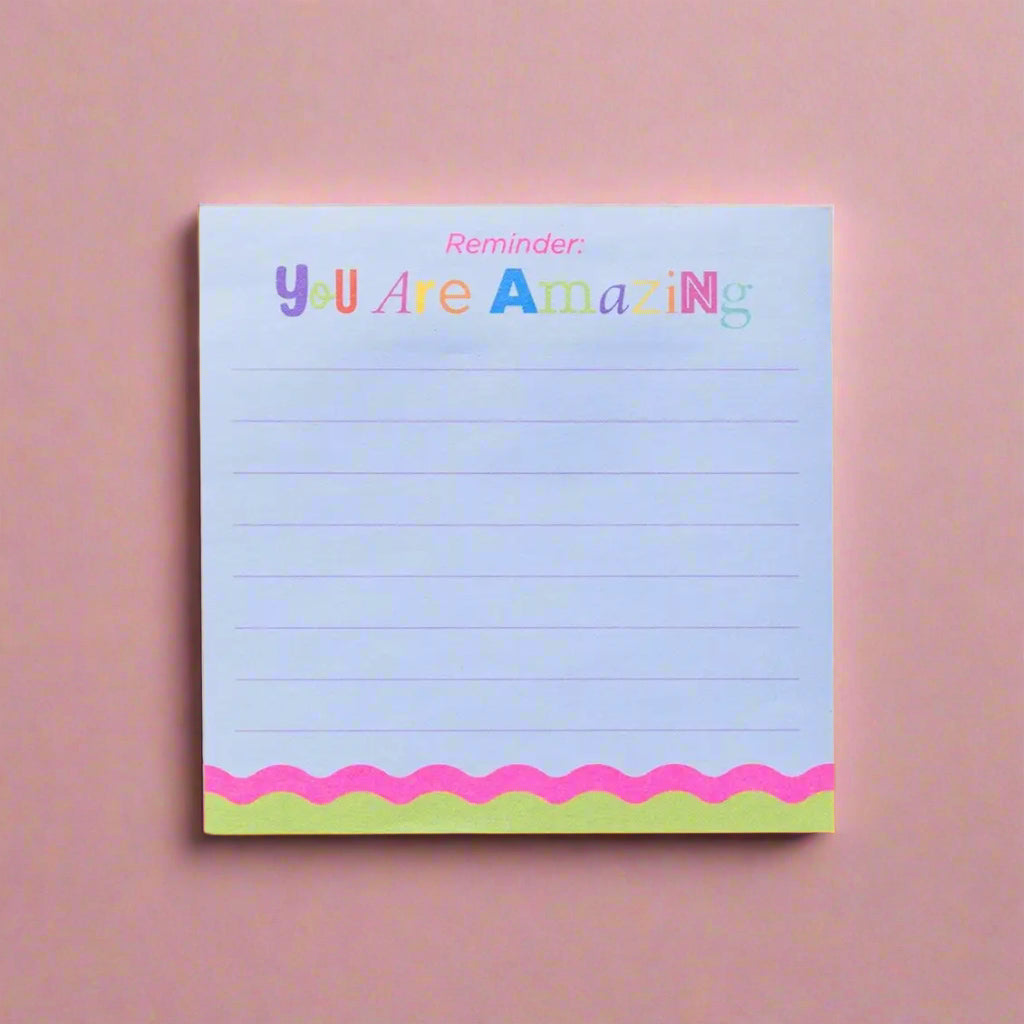 Reminder:
YoU Are AmaziNg